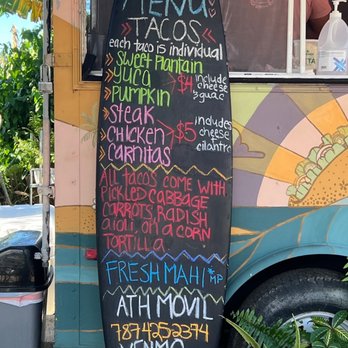 MENU
TACOS
each taco is individual
Sweet Plantain
YUCA
PUMPKIN
$4 include cheese & guac
Steak
CHICKEN
CARNITAS
$5 includes cheese & cilantro
ALL TACOS COME WITH
PICKLED CABBAGE
CARROTS, RADISH
aioli, on a CORN
TORTILLA
FRESH MAHI *MP
ATH MOVIL
787 425 2394
VENMO